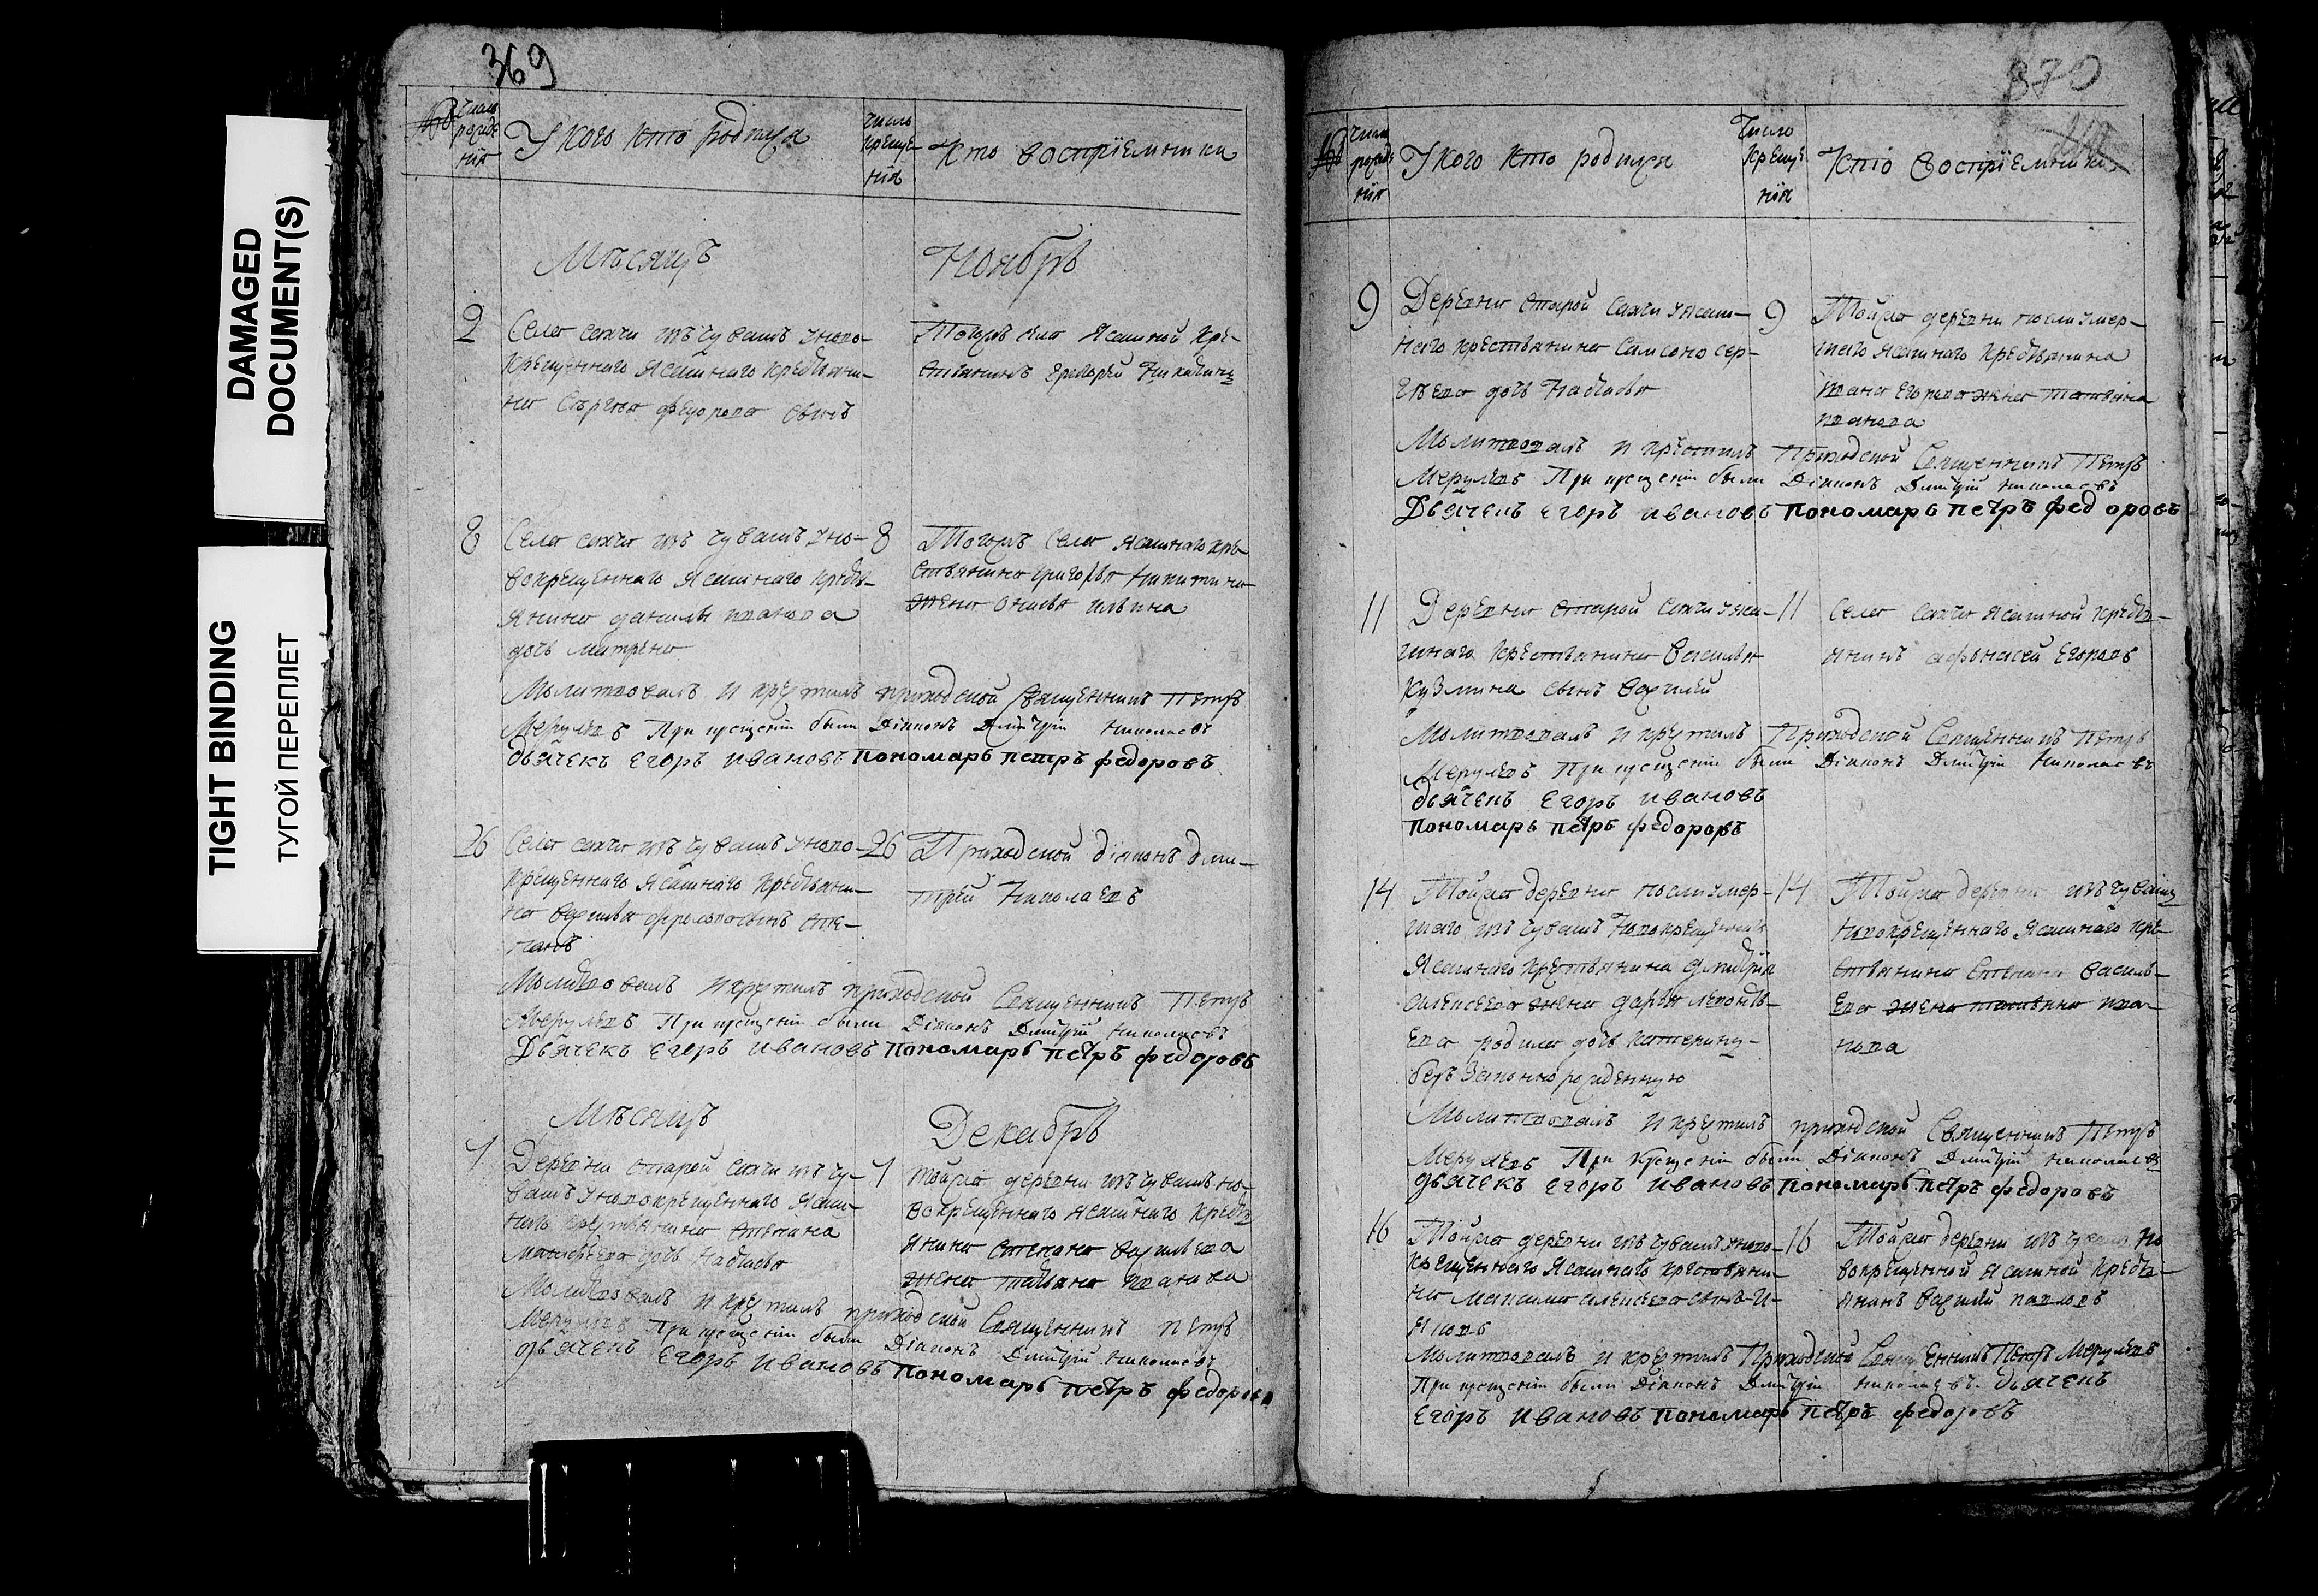 DAMAGED
DOCUMENT(S)
TIGHT BINDING
ТУГОЙ ПЕРЕПЛЕТ
369
число рожденія
У кого кто родился
число крещенія
Кто воспріемники
Мѣсяцъ Ноябрь
2
Села изъ чувашъ уново-
крещеннаго ясашнаго крестьяни-
на Сергея Федорова сынъ
Тогожъ села ясашной кре-
стьянинъ Григорей Никитинъ
8
Села изъ чувашъ уно-
вокрещеннаго ясашнаго кресть-
янина данилы иванова
дочь матрена
8
Тогожъ села ясашнаго кре-
стьянина григорья никитина
жена ильина
Молитвовалъ и крестилъ приходской Священникъ Петръ
При крещеніи были Діаконъ Дмитрій Николаевъ
дьячекъ Егоръ Ивановъ пономарь петръ федоровъ
26
Села изъ чувашъ уново-
крещеннаго ясашнаго крестьяни-
на василья сынъ сте-
панъ
26
Приходской діаконъ дми-
трей Николаевъ
Молитвовалъ и крестилъ приходской Священникъ Петръ
При крещеніи были Діаконъ Дмитрій Николаевъ
Дьячекъ Егоръ Ивановъ пономарь петръ федоровъ
Мѣсяцъ Декабрь
Деревни старой изъ чу-
вашъ уновокрещеннаго ясаш-
наго крестьянина степана
дочь настасья
тойже деревни изъ чувашъ но-
вокрещеннаго ясашнаго кресть-
янина степана васильева
жена татьяна иванова
Молитвовалъ и крестилъ приходской Священникъ петръ
При крещеніи были Діаконъ Дмитрій Николаевъ
дьячекъ Егоръ Ивановъ пономарь петръ федоровъ
370
число рожденія
У кого кто родился
Число крещенія
Кто воспріемники
9
Деревни старой уясаш-
наго крестьянина самсона сер-
геева дочь настасья
9
Тойже деревни послѣ умер-
шаго ясашнаго крестьянина
ивана егорова жена татьяна
иванова
Молитвовалъ и крестилъ Приходской Священникъ Петръ
При крещеніи были Діаконъ Дмитрій Николаевъ
Дьячекъ Егоръ Ивановъ пономарь петръ федоровъ
11
Деревни старой уяса-
шнаго крестьянина василья
кузмина сынъ василей
11
Села ясашной кресть-
янинъ афонасей егоровъ
Молитвовалъ и крестилъ Приходской Священникъ Петръ
При крещеніи были Діаконъ Дмитрій Николаевъ
дьячекъ Егоръ Ивановъ
пономарь петръ федоровъ
14
Тойже деревни послѣ умер-
шаго изъ чувашъ новокрещеннаго
ясашнаго крестьянина дмитрія
алексеева жена дарья леонть-
ева родила дочь катерину
беззаконнорожденную
14
Тойже деревни изъ чувашъ
новокрещеннаго ясашнаго кре-
стьянина степана василь-
ева жена татьяна ива-
нова
Молитвовалъ и крестилъ приходской Священникъ Петръ
При крещеніи были Діаконъ Дмитрій Николаевъ
дьячекъ Егоръ Ивановъ пономарь петръ федоровъ
16
Тойже деревни изъ чувашъ уново-
крещеннаго ясашнаго крестьяни-
на максима алексеева сынъ И-
яковъ
16
Тойже деревни изъ чувашъ но
вокрещенной ясашной кресть-
янинъ василей павловъ
Молитвовалъ и крестилъ Приходской Священникъ Петръ
При крещеніи были Діаконъ Дмитрій Николаевъ дьячекъ
Егоръ Ивановъ пономарь петръ федоровъ